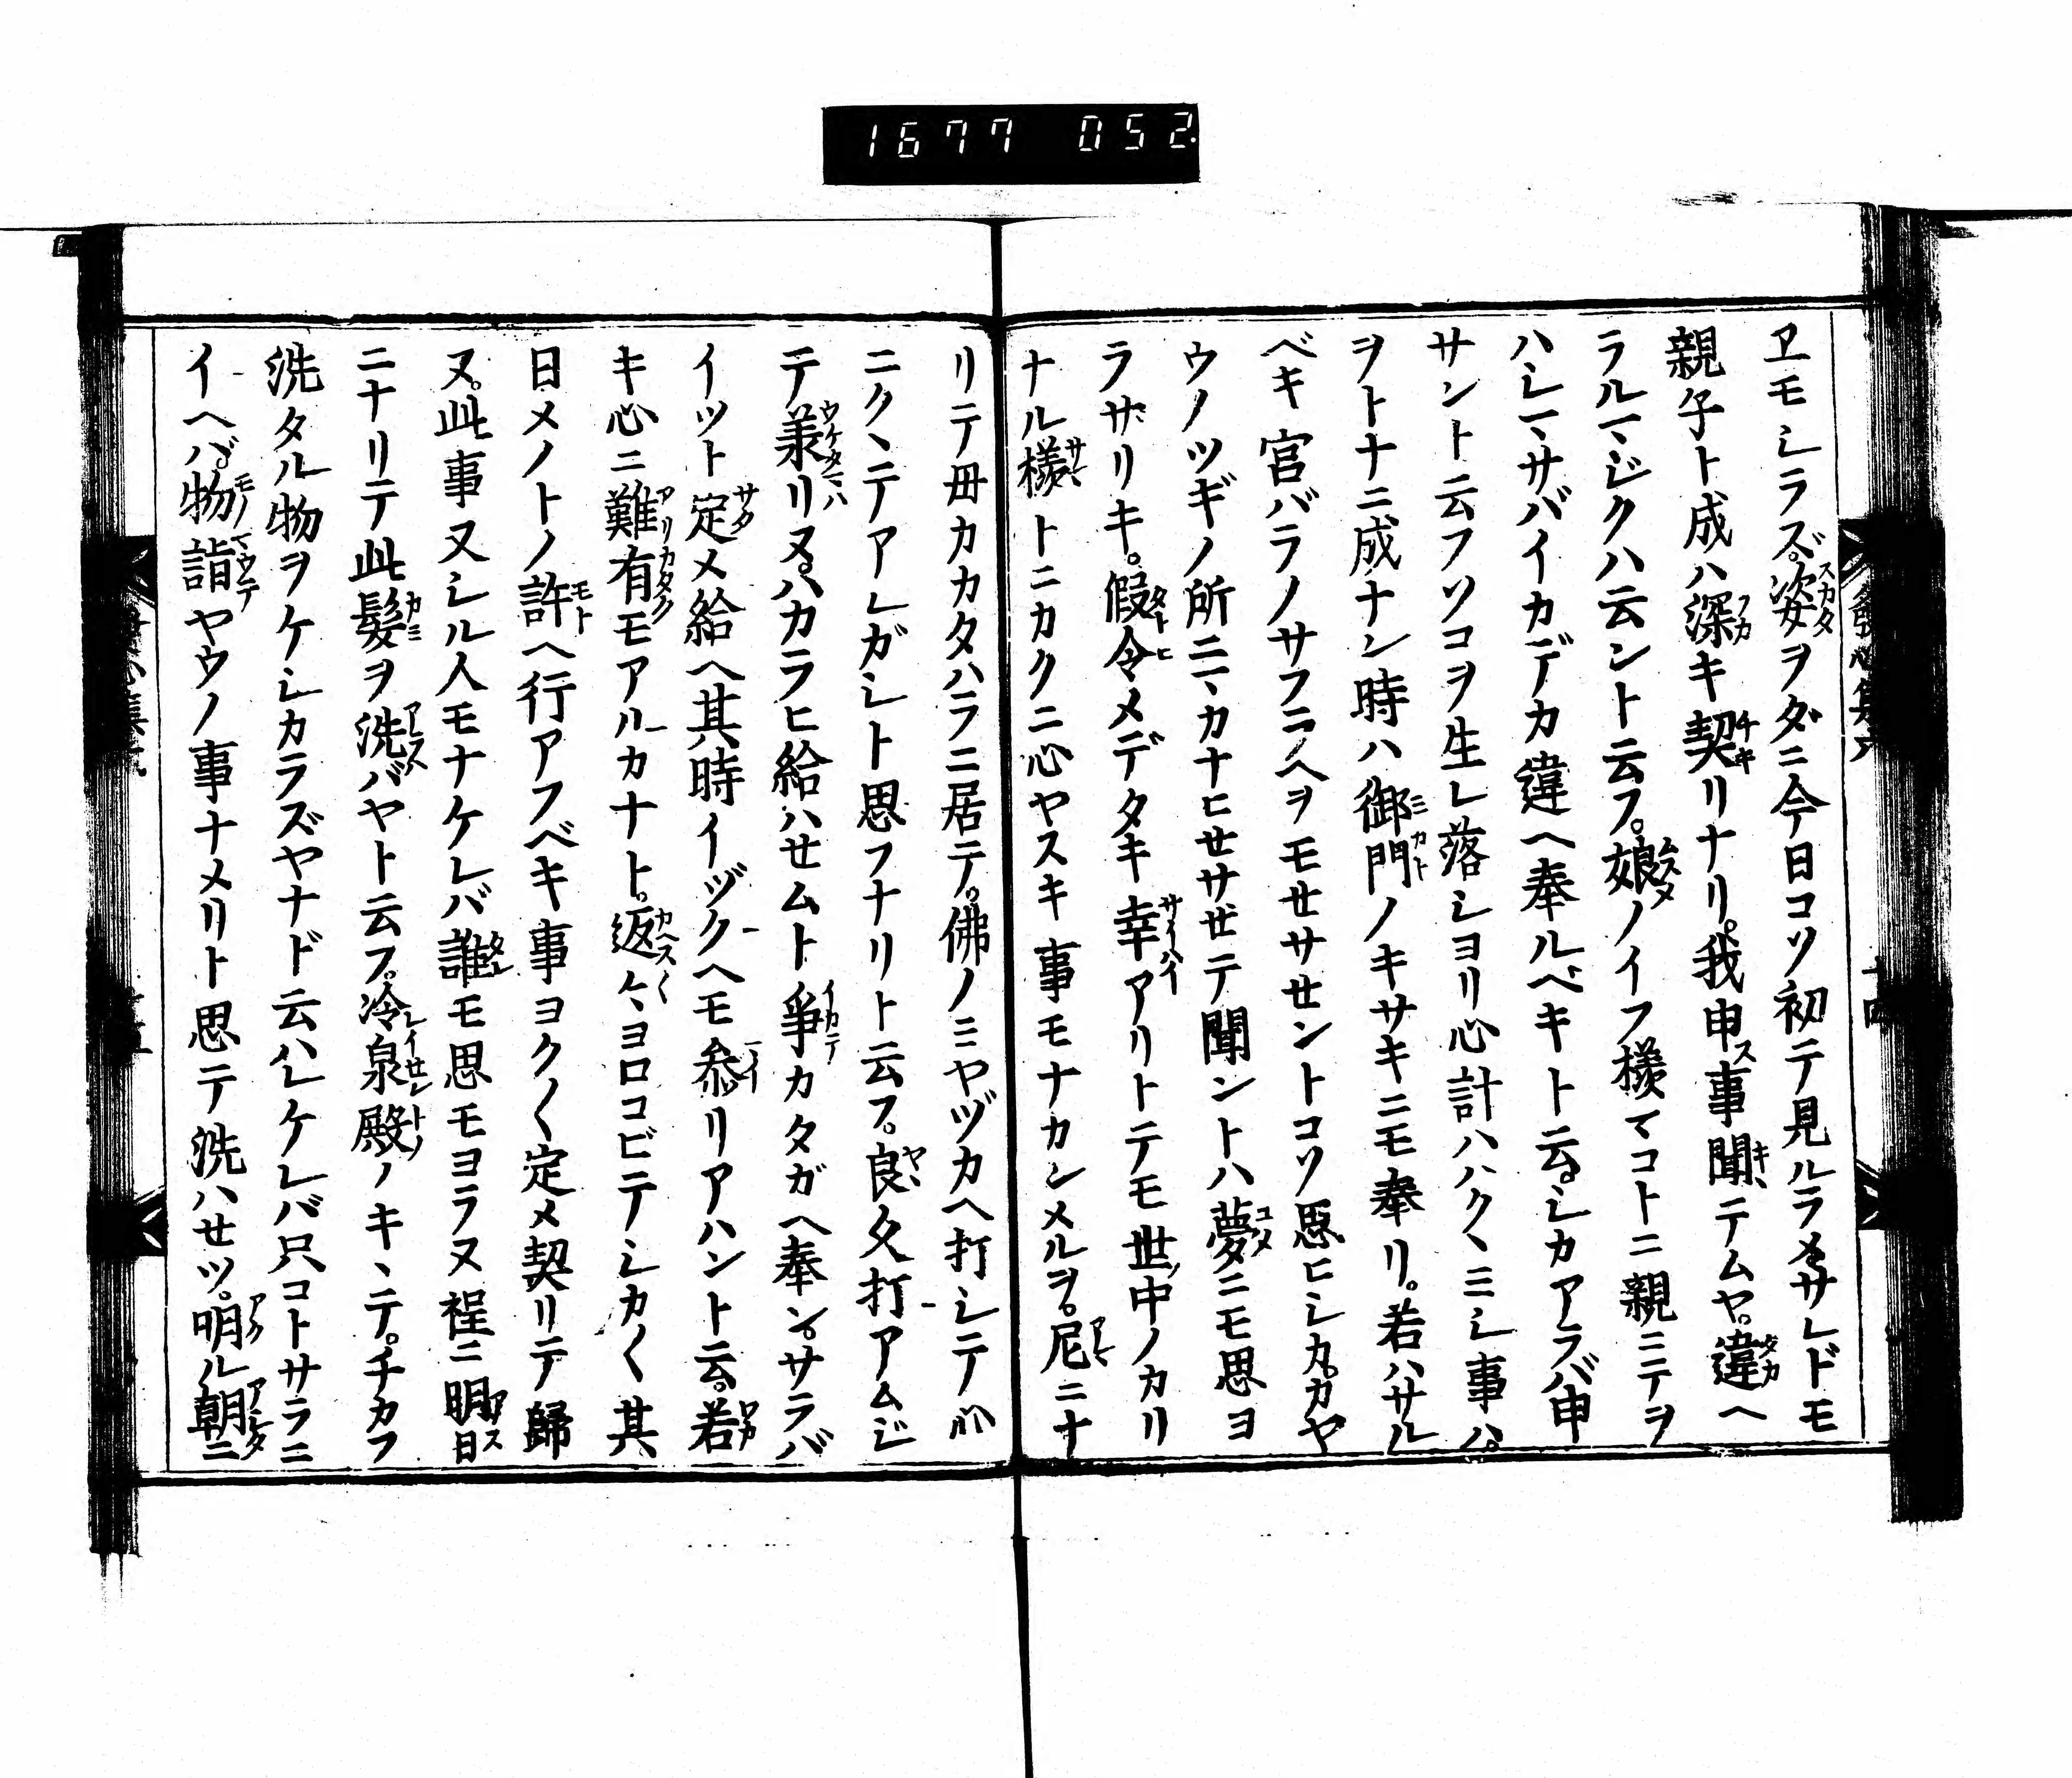 1677 052
ヱモシラズ。姿ヲダニ今日コソ初テ見ルラメサレドモ
親子ト成ハ深キ契リナリ。我申ス事聞テムヤ。違ヘ
ラルマジクハ云ント云フ。娘ノイフ様マコトニ親ミテヲ
ハシマサバイカデカ違ヘ奉ルベキト云。シカアラバ申
サント云フソコヲ生レ落シヨリ心計ハハクヽミシ事ハ。
ヲトナニ成ナン時ハ御門ノキサキニモ奉リ。若ハサル
ベキ宮バラノサフラヘヲモセサセントコソ思ヒシカ。カヤ
ウノツギノ所ニヽカナヒセサセテ聞ントハ夢ニモ思ヨ
ラザリキ。假令メデタキ幸アリトテモ世ノ中ノカリ
ナル様トニカクニ心ヤスキ事モナカンメルヲ。尼ニナ
リテ毋カカタハラニ居テ。佛ノミヤヅカヘ打シテ心
ニクヽテアレガシト思フナリト云フ。良久打アムジ
テ羕リヌ。ハカラヒ給ハセムト爭カタガヘ奉ン。サラバ
イツト定メ給ヘ其時イヅクヘモ参リアハント云。若
キ心ニ難有モアルカナト。返〻ヽヨロコビテシカ〱其
日メノトノ許ヘ行アフベキ事ヨク〱定メ契リテ歸
ヌ。此事又シル人モナケレバ誰モ思モヨラヌ程ニ明日
ニナリテ此髮ヲ洗バヤト云フ。冷泉殿ノキヽテ。チカフ
洗タル物ヲケシカラズヤナド云ハレケレバ只コトサラニ
イヘバ。物詣ヤウノ事ナメリト思テ洗ハセツ。明ル朝ニ